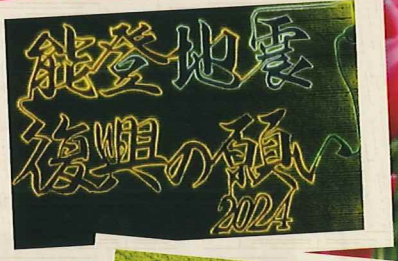 能登地震
復興の願い
2024